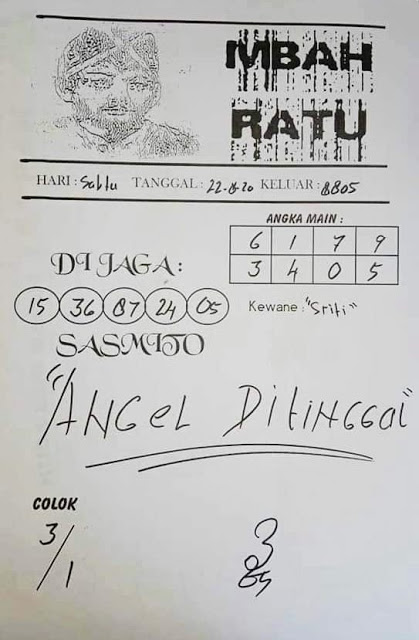 MBAH
RATU
HARI : Sabtu TANGGAL : 22-8-20 KELUAR : 8805
ANGKA MAIN :
6 1 7 9
3 4 0 5
DI JAGA :
15 36 87 24 05
Kewane : "Sriti"
SASMITO
"ANGEL DITINGGAL"
COLOK
3/1
3